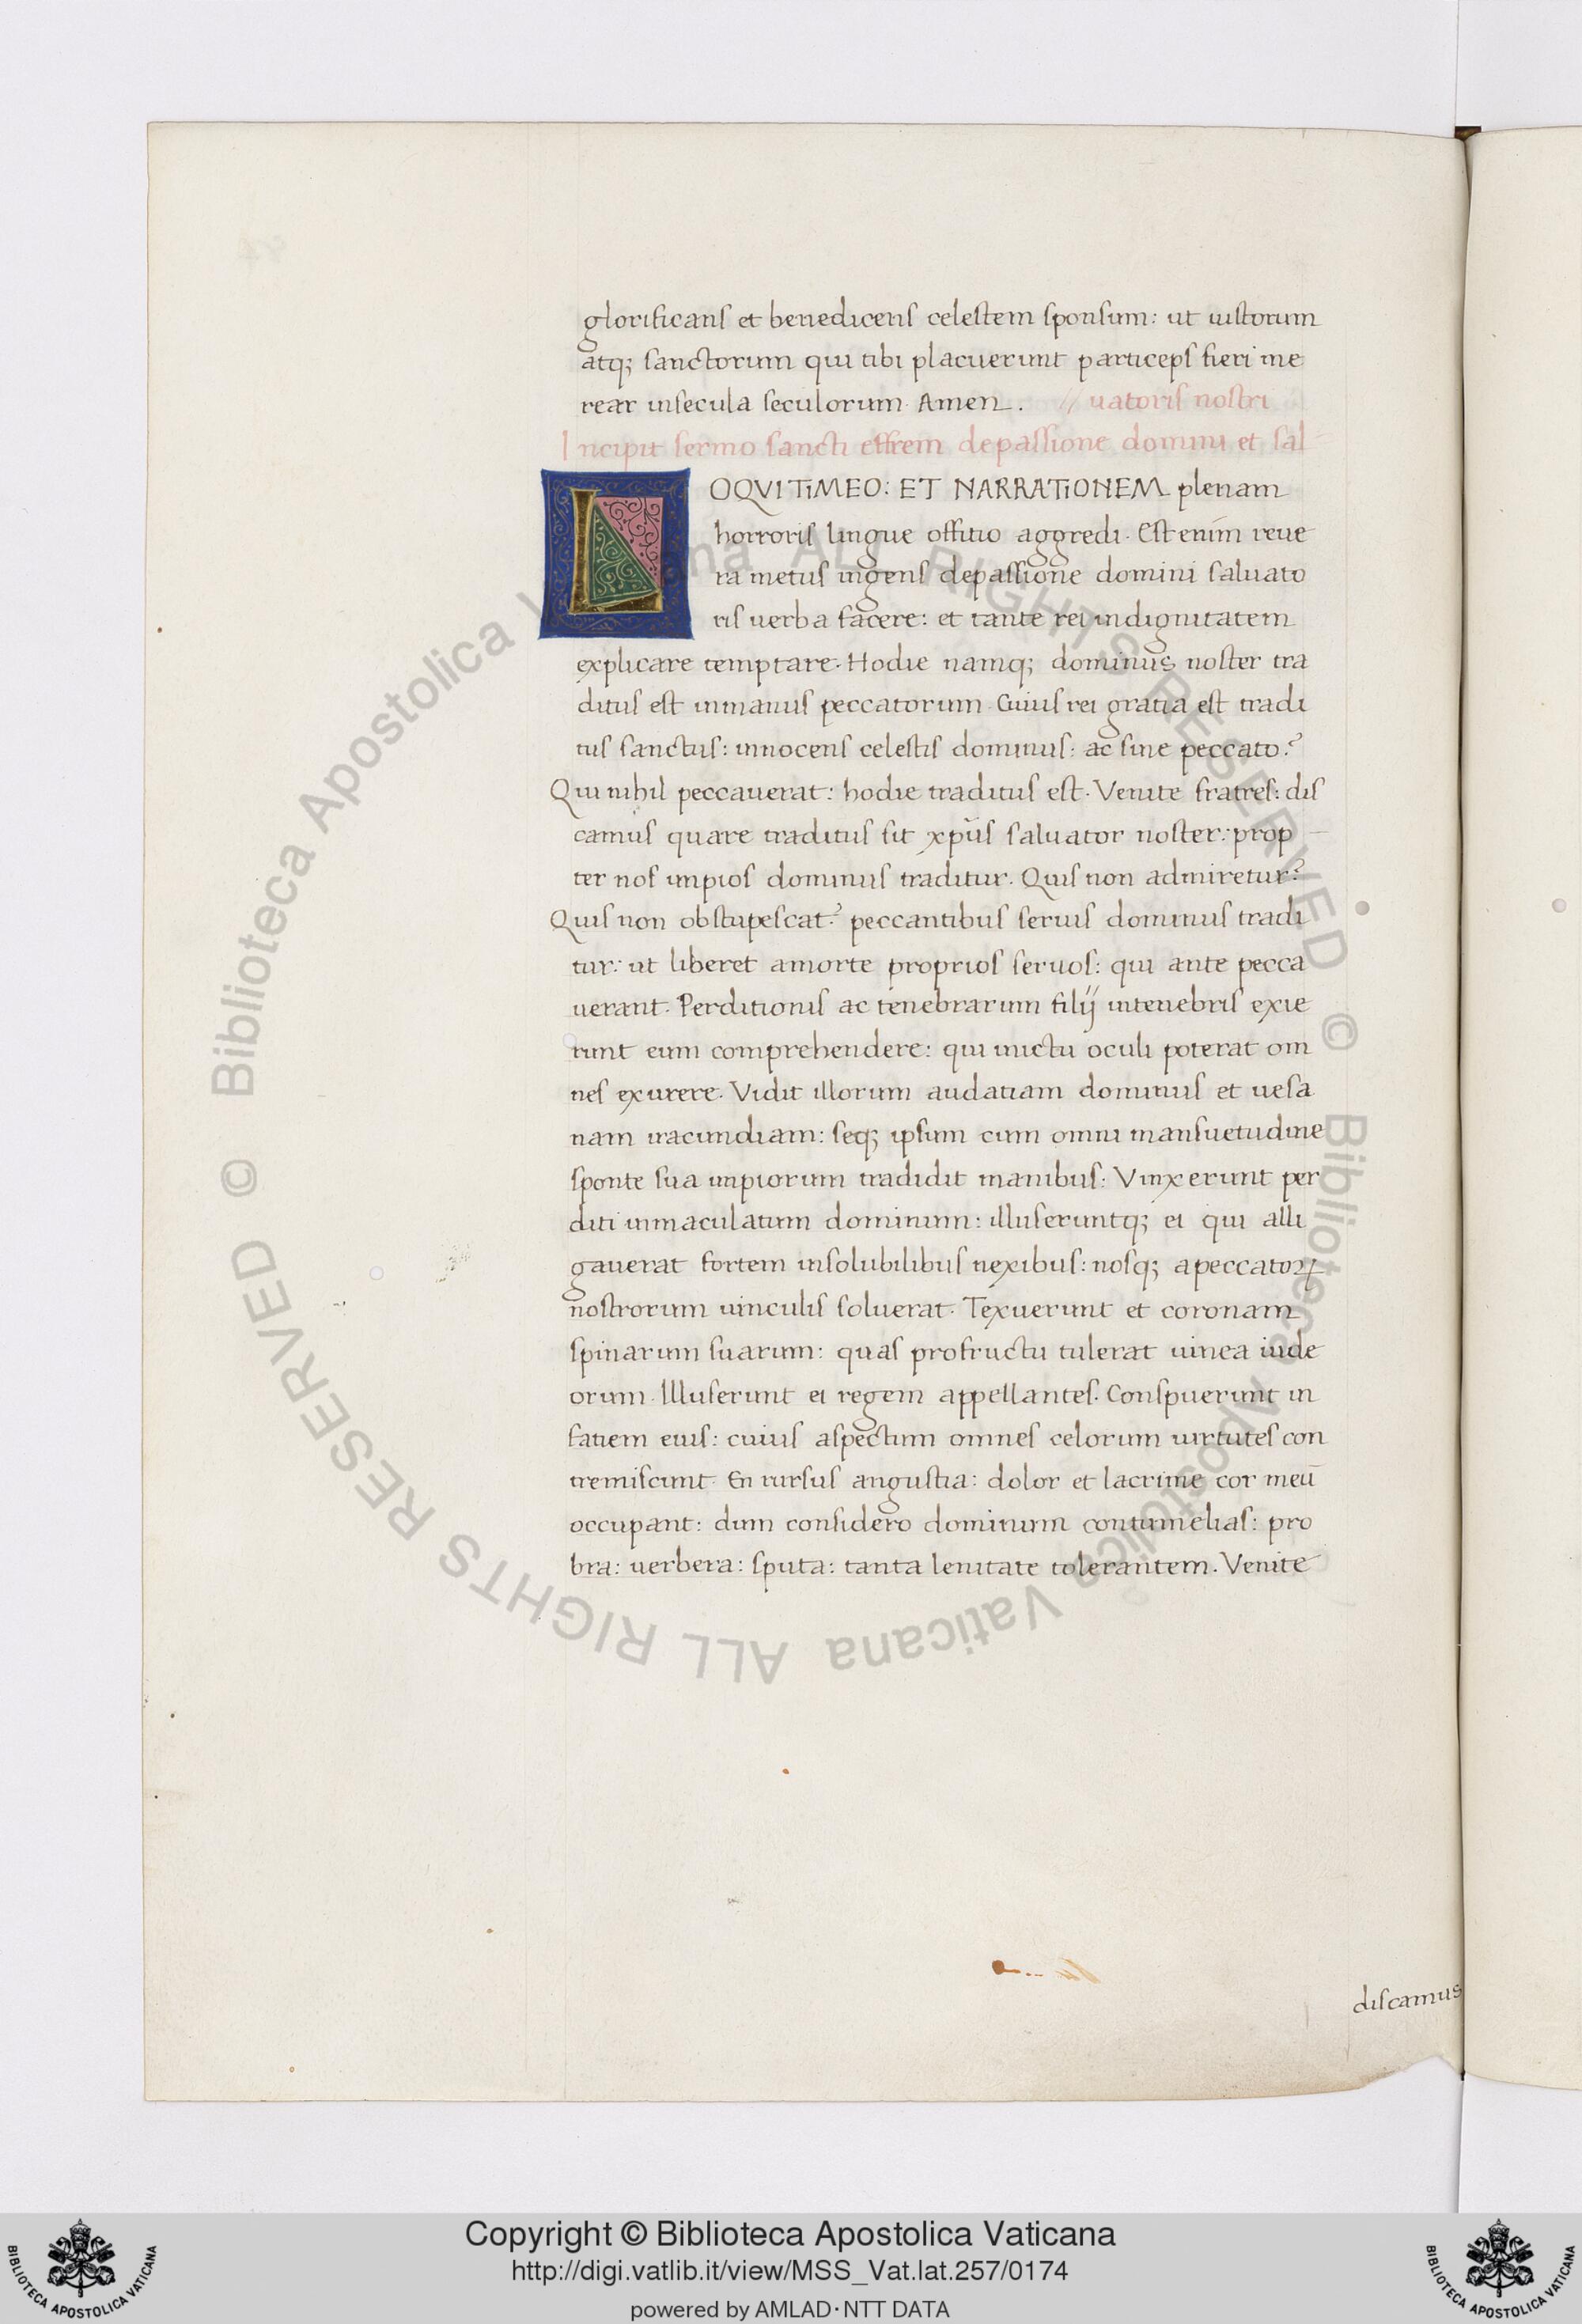 glorificans et benedicens celestem sponsum: ut iustorum
atq; sanctorum qui tibi placuerunt particeps fieri me
rear insecula seculorum. Amen. // uatoris nostri
Incipit sermo sancti effrem depassione domini et sal
LOQVI TiMEO: ET NARRATiONEM plenam
horroris lingue offitio aggredi. Est enim reue
ra metus ingens depassione domini saluato
ris uerba facere: et tante rei indignitatem
explicare temptare. Hodie namq; dominus noster tra
ditus est inmanus peccatorum. Cuius rei gratia est tradi
tus sanctus: innocens celestis dominus: ac sine peccato?
Qui nihil peccauerat: hodie traditus est. Venite fratres: dis
camus quare traditus sit xp̄us saluator noster: prop
ter nos impios dominus traditur. Quis non admiretur?
Quis non obstupescat? peccantibus seruis dominus tradi
tur: ut liberet amorte proprios seruos: qui ante pecca
uerant. Perditionis ac tenebrarum filij intenebris exie
runt eum comprehendere: qui inictu oculi poterat om
nes exurere. Vidit illorum audatiam dominus et uesa
nam iracundiam: seq; ipsum cum omni mansuetudine
sponte sua impiorum tradidit manibus: Vinxerunt per
diti inmaculatum dominum: illuseruntq; ei qui alli
gauerat fortem insolubilibus nexibus: nosq; apeccatoꝝ
nostrorum uinculis soluerat. Texuerunt et coronam
spinarum suarum: quas profructu tulerat uinea iude
orum. Illuserunt ei regem appellantes. Conspuerunt in
fatiem eius: cuius aspectum omnes celorum uirtutes con
tremiscunt. En rursus angustia: dolor et lacrime cor meū
occupant: dum considero dominum contumelias: pro
bra: uerbera: sputa: tanta lenitate tolerantem. Venite
discamus
© Biblioteca Apostolica Vaticana ALL RIGHTS RESERVED
© Biblioteca Apostolica Vaticana ALL RIGHTS RESERVED
Copyright © Biblioteca Apostolica Vaticana
http://digi.vatlib.it/view/MSS_Vat.lat.257/0174
powered by AMLAD·NTT DATA
BIBLIOTECA APOSTOLICA VATICANA
BIBLIOTECA APOSTOLICA VATICANA